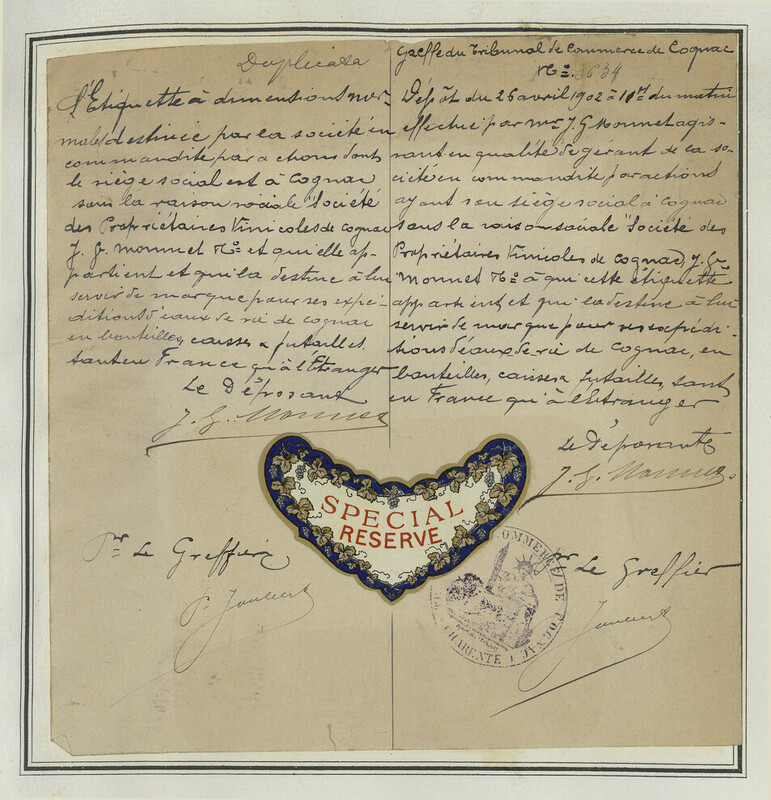 Duplicata
l'Etiquette à dimensions nor-
males destinée par la société en
commandite par actions dont
le siège social est à Cognac
sous la raison sociale "Société
des Propriétaires Vinicoles de Cognac
J. G. Monnet & Co et qu'elle ap-
partient et qui la destine à lui
servir de marque pour ses expé-
ditions d'eaux de vie de cognac
en bouteilles, caisses & futailles,
tant en France qu'à l'Etranger
Le Déposant
J. G. Monnet
Pr Le Greffier
P. Joubert
Greffe du Tribunal de Commerce de Cognac
No. 8634
Dépôt du 26 avril 1902 à du matin
effectué par Mr J. G. Monnet agis-
sant en qualité de gérant de la so-
ciété en commandite par actions
ayant son siège social à Cognac
sous la raison sociale "Société des
Propriétaires Vinicoles de Cognac, J. G.
Monnet & Co à qui cette étiquette
appartient et qui la destine à lui
servir de marque pour ses expédi-
tions d'eaux de vie de Cognac, en
bouteilles, caisses & futailles, tant
en France qu'à l'Etranger
Le Déposant
J. G. Monnet
SPECIAL
RESERVE
COMMERCE DE COGNAC
CHARENTE
Pr Le Greffier
Joubert